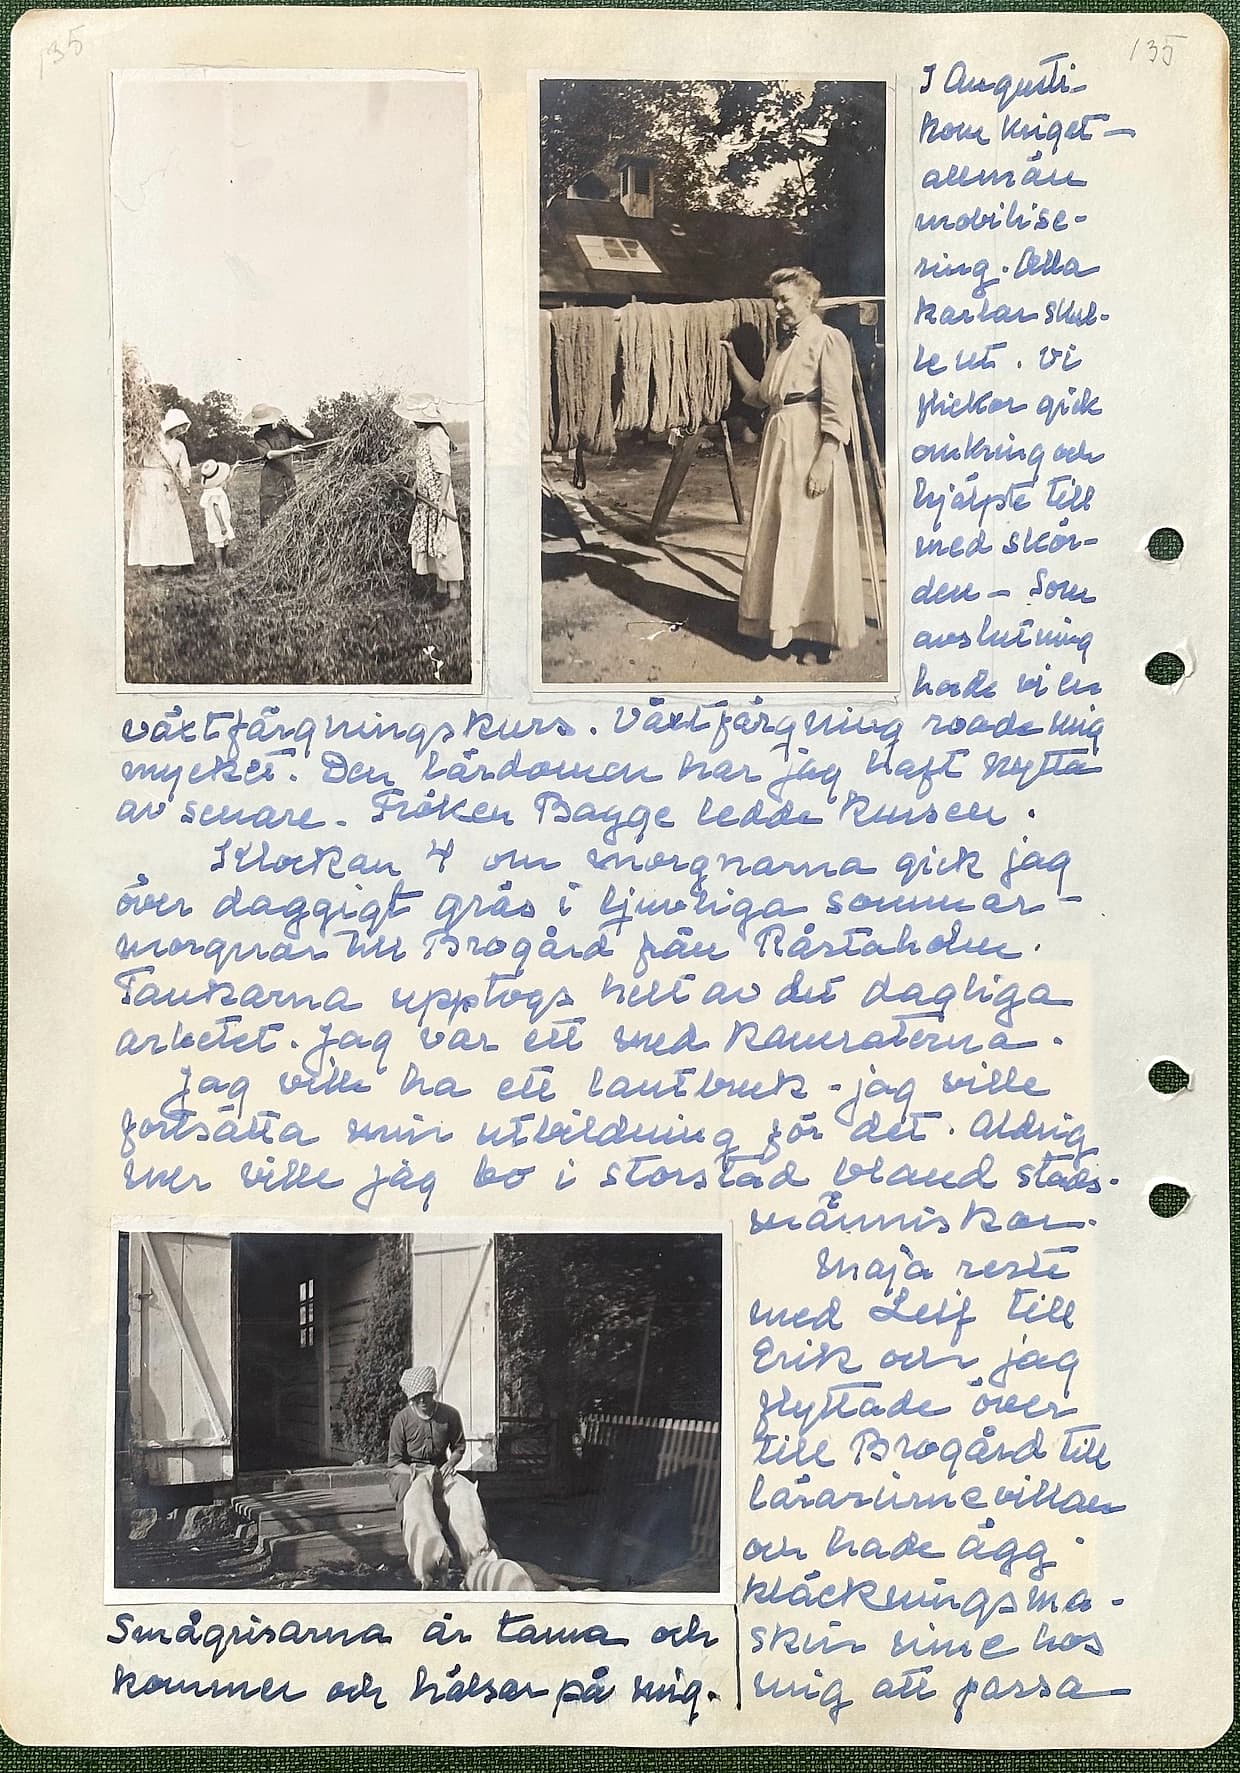 135
135
I Augusti
kom kriget —
allmän
mobilise-
ring. Alla
karlar skul-
le ut. Vi
flickor gick
omkring och
hjälpte till
med skör-
den — Som
avslutning
hade vi en
växtfärgningskurs. Växtfärgning roade mig
mycket. Den lärdomen har jag haft nytta
av senare. Fröken Bagge ledde kursen.
Klockan 4 om morgnarna gick jag
över daggigt gräs i ljuvliga sommar-
morgnar till Brogård från Råstaholm.
Tankarna upptogs helt av det dagliga
arbetet. Jag var ett med kamraterna.
Jag ville ha ett lantbruk - jag ville
fortsätta min utbildning för det. Aldrig
mer ville jag bo i storstad bland stads-
människor.
Maja reste
med Leif till
Erik och jag
flyttade över
till Brogård till
lärarinnevillan
och hade ägg-
kläckningsma-
skin inne hos
mig att passa
Smågrisarna är tama och
kommer och hälsar på mig.